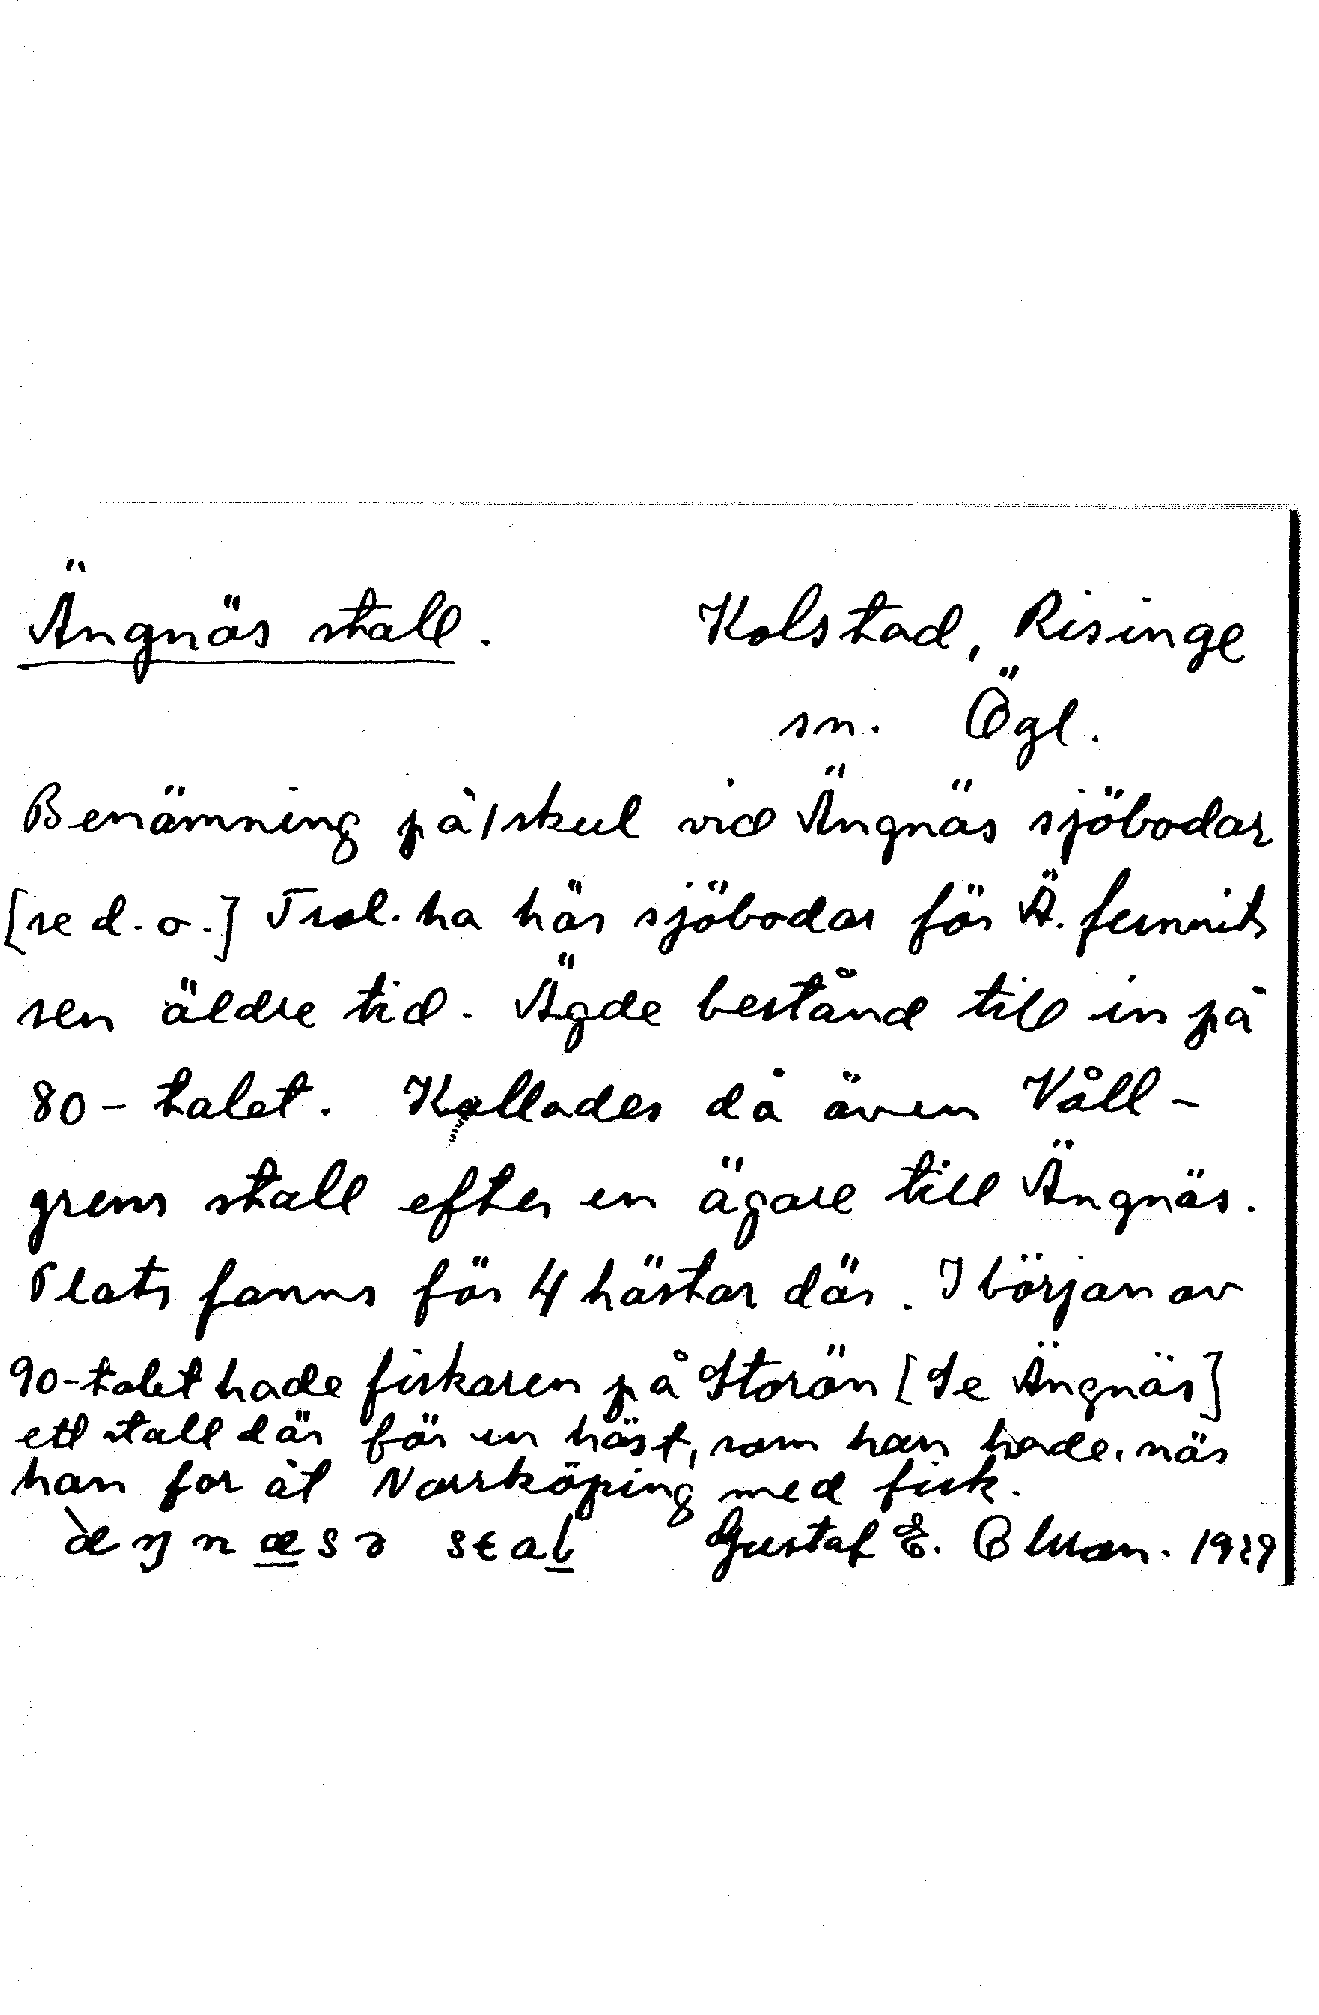 Ängnäs stall. Kolstad, Risinge
sn. Ögl.
Benämning på 1 skul vid Ängnäs sjöbodar
[se d. o.] Trol. ha här sjöbodar för Ä. funnits
sen äldre tid. Ägde bestånd till in på
80-talet. Kallades då även Våll-
grens stall efter en ägare till Ängnäs.
Plats fanns för 4 hästar där. I början av
90-talet hade fiskaren på Storön [Se Ängnäs]
ett stall där för en häst, som han hade, när
han for åt Norrköping med fisk.
æŋnæsə stal Gustaf E. 1929